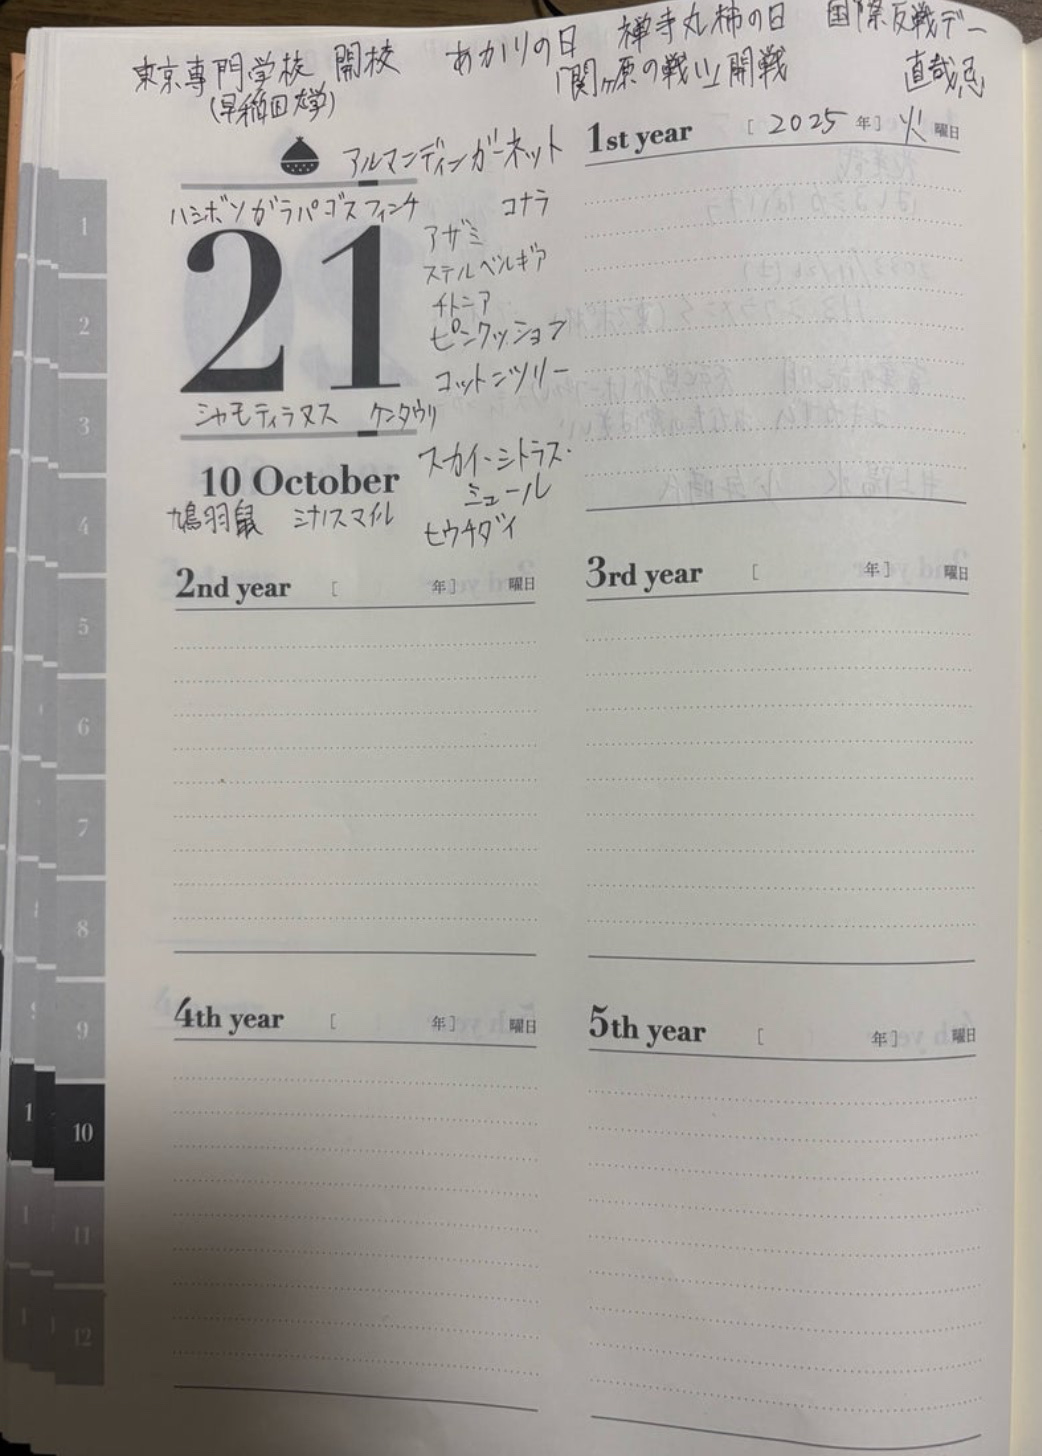 東京専門学校 開校 あかりの日 禅寺丸柿の日 国際反戦デー
(早稲田大学) 「関ヶ原の戦い」開戦 直哉忌
アルマンディンガーネット
ハシボソガラパゴスフィンチ コナラ
21
アザミ
ステルンベルギア
チトニア
ピンクッション
コットンツリー
シャモティラヌス ケンタウリ
10 October
スカイ・シトラス・
ミュール
鳩羽鼠 ミナノスマイル
ヒウチダイ
1st year [ 2025 年] 火 曜日
2nd year [ 年] 曜日
3rd year [ 年] 曜日
4th year [ 年] 曜日
5th year [ 年] 曜日
1
2
3
4
5
6
7
8
9
10
11
12